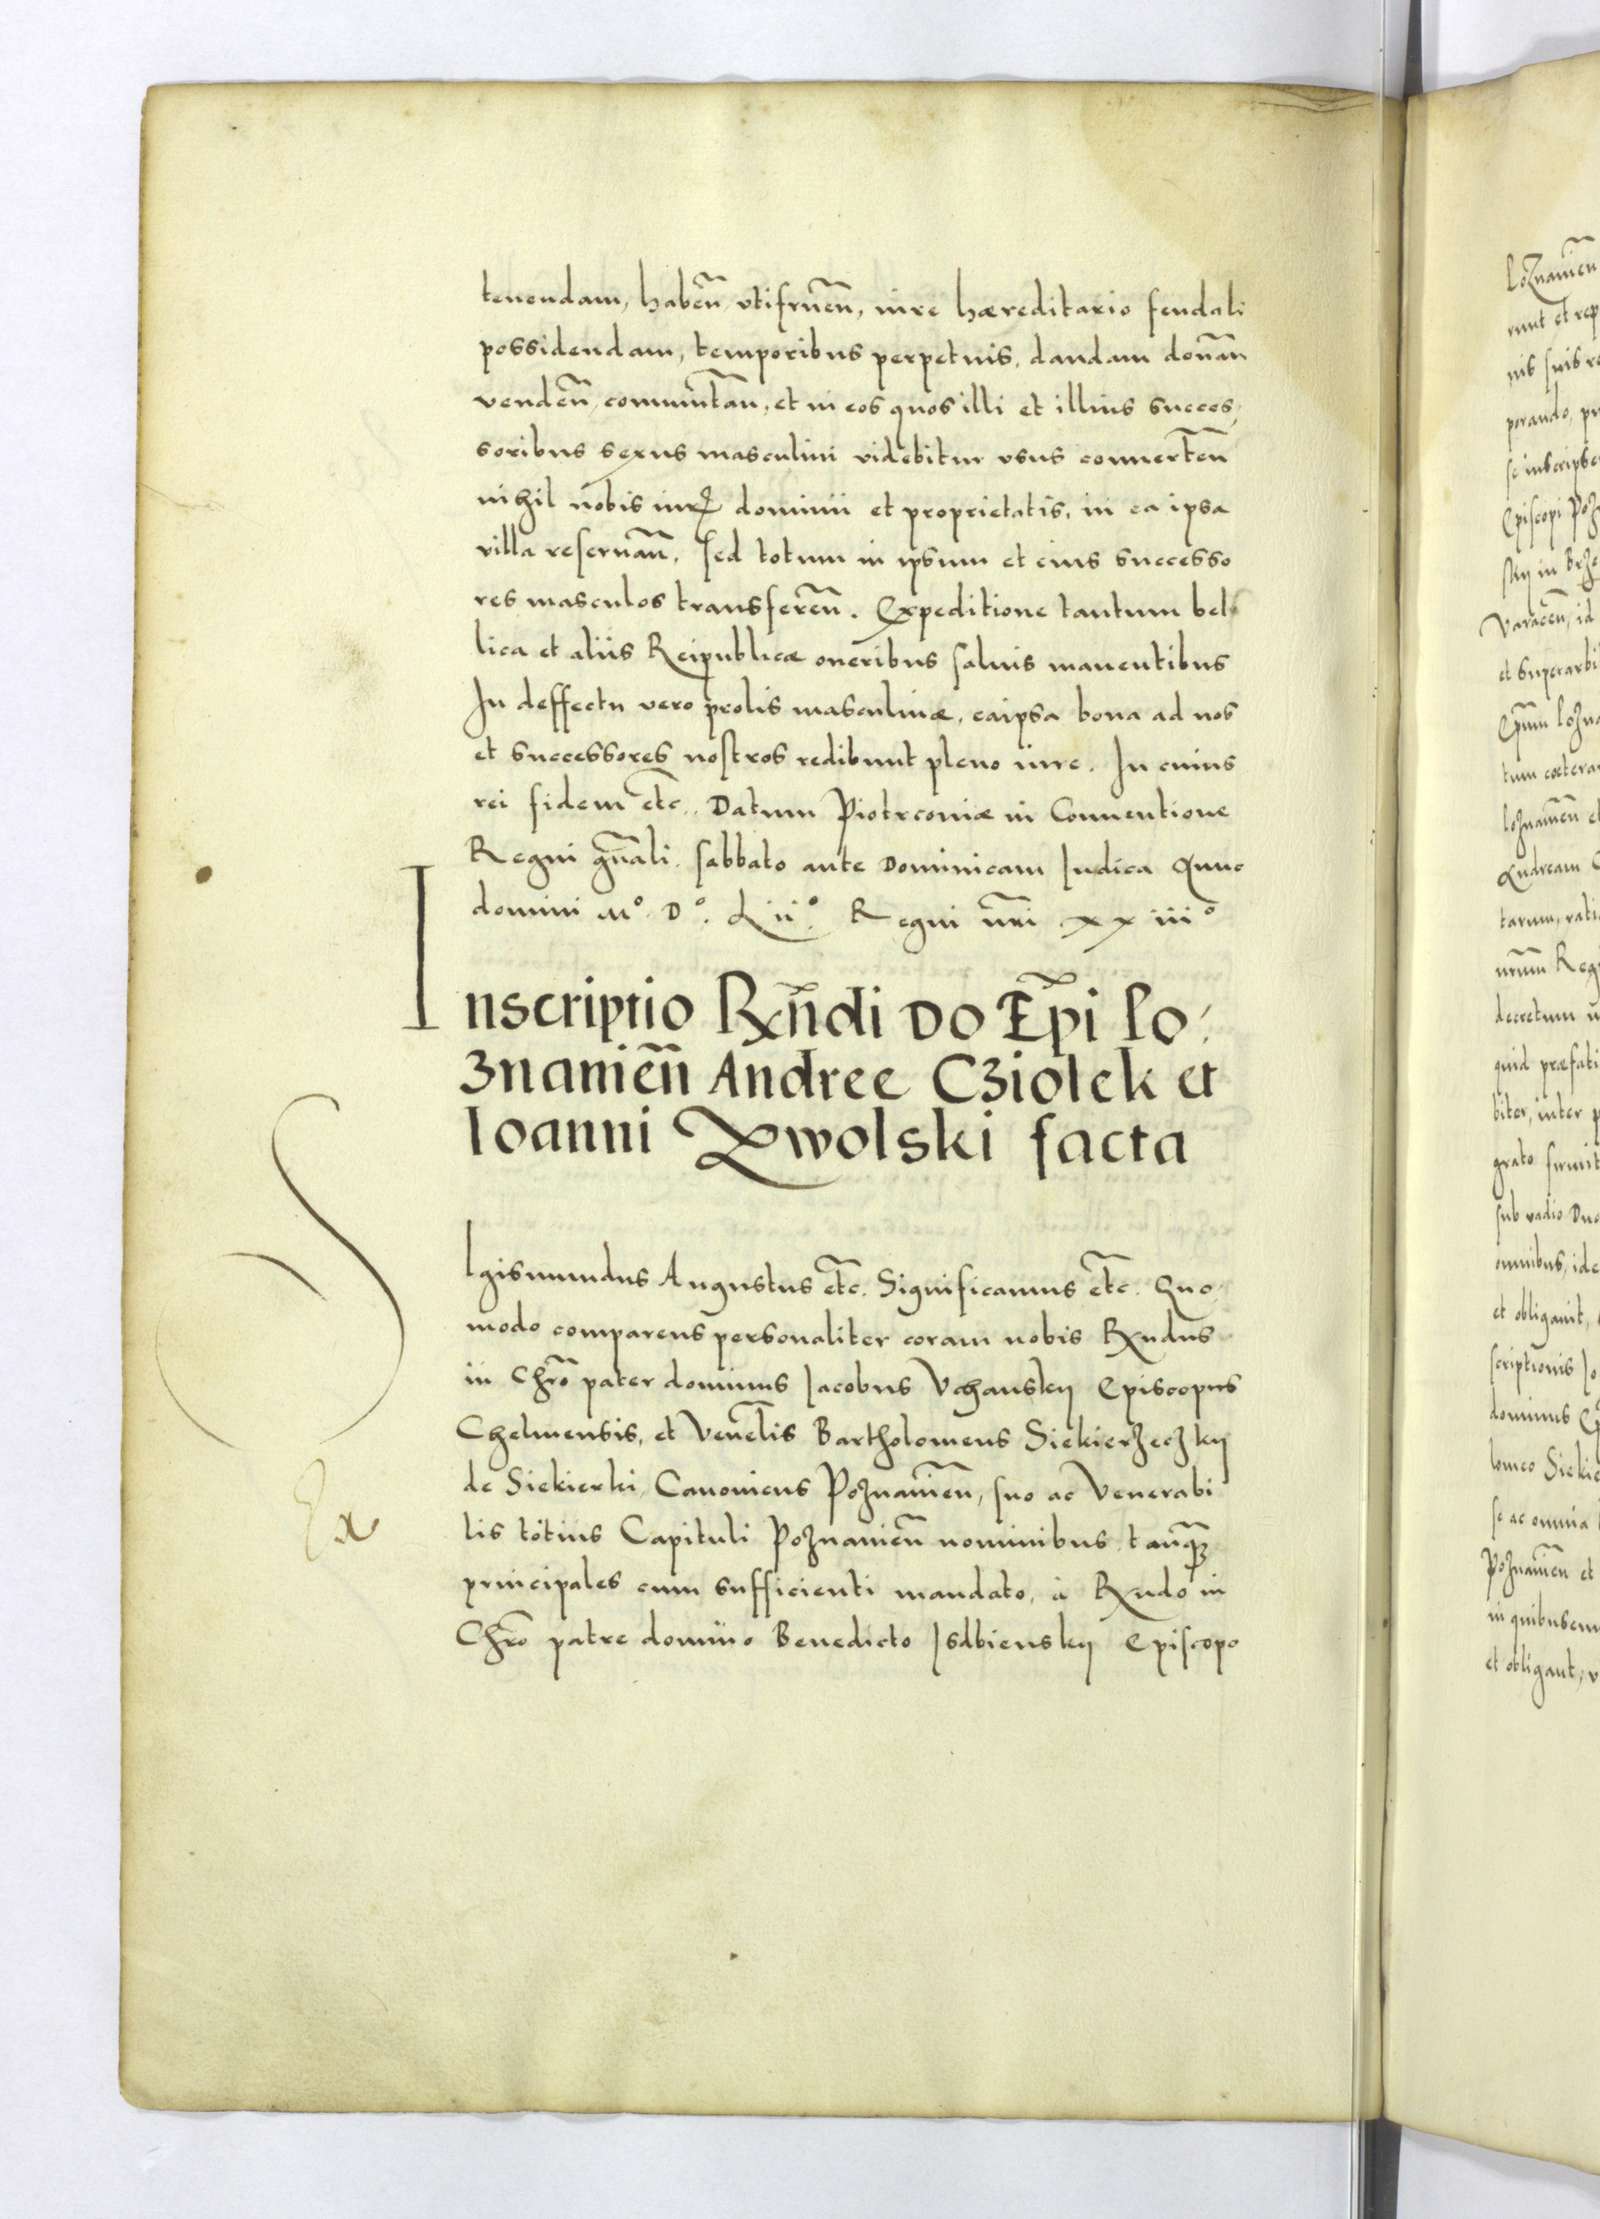 tenendam, habeñ, vtifrueñ, iure hæreditario feudali
possidendam, temporibus perpetuis, dandam donañ
vendeñ, commutañ, et in eos quos illi et illius succes,
soribus sexus masculini videbitur vsus conuerteñ
nihil nobis iurꝭ dominii et proprietatis, in ea ipsa
villa reseruañ. Sed totum in ipsum et eius successo
res masculos transfereñ. Expeditione tantum bel
lica et aliis Reipublicæ oneribus saluis manentibus
In deffectu vero prolis masculinæ, eaipsa bona ad nos
et successores nostros redibunt pleno iure. In cuius
rei fidem etc. Datum Piotrcouiæ in Conuentione
Regni gñali. Sabbato ante Dominicam Iudica Anno
domini Mº. Dº. Liiº. Regni ñri xxiiiº
Inscriptio Rx̃ndi DO Ep̃i Po,
znanieñ Andree Cziolek et
Ioanni Zwolski facta
SIgismundus Augustus etc. Significamus etc. Quo,
modo comparens personaliter coram nobis Rxndus
in Chr̃o pater dominus Iacobus Vchansky Episcopus
Chelmensis, et Veneℓlis Bartholomeus Siekierzeczky
de Siekierki, Canonicus Poznanieñ, suo ac Venerabi
lis totius Capituli Poznanieñ nominibus, tanq̃
principales cum sufficienti mandato, à Rxndo in
Chr̃o patre domino Benedicto Isdbiensky Episcopo
Ex
loznanieñ
runt et rep
nis suis re
porando, pr
se inscripse
Episcopi Poz
sky in Brze
Varaceñ, id
et superarbi
Ep̃um lozna
tum cæterar
loznanieñ et
Andream C
tarum, rati
nr̃um Reg
decretum n
quid præfati
biter, inter p
grato fuerit
sub vadio Duo
omnibus, ide
et obligauit,
scriptionis Io
dominus Ep
lomeo Siekie
se ac omnia
Poznanieñ et
in quibuscun
et obligant, v